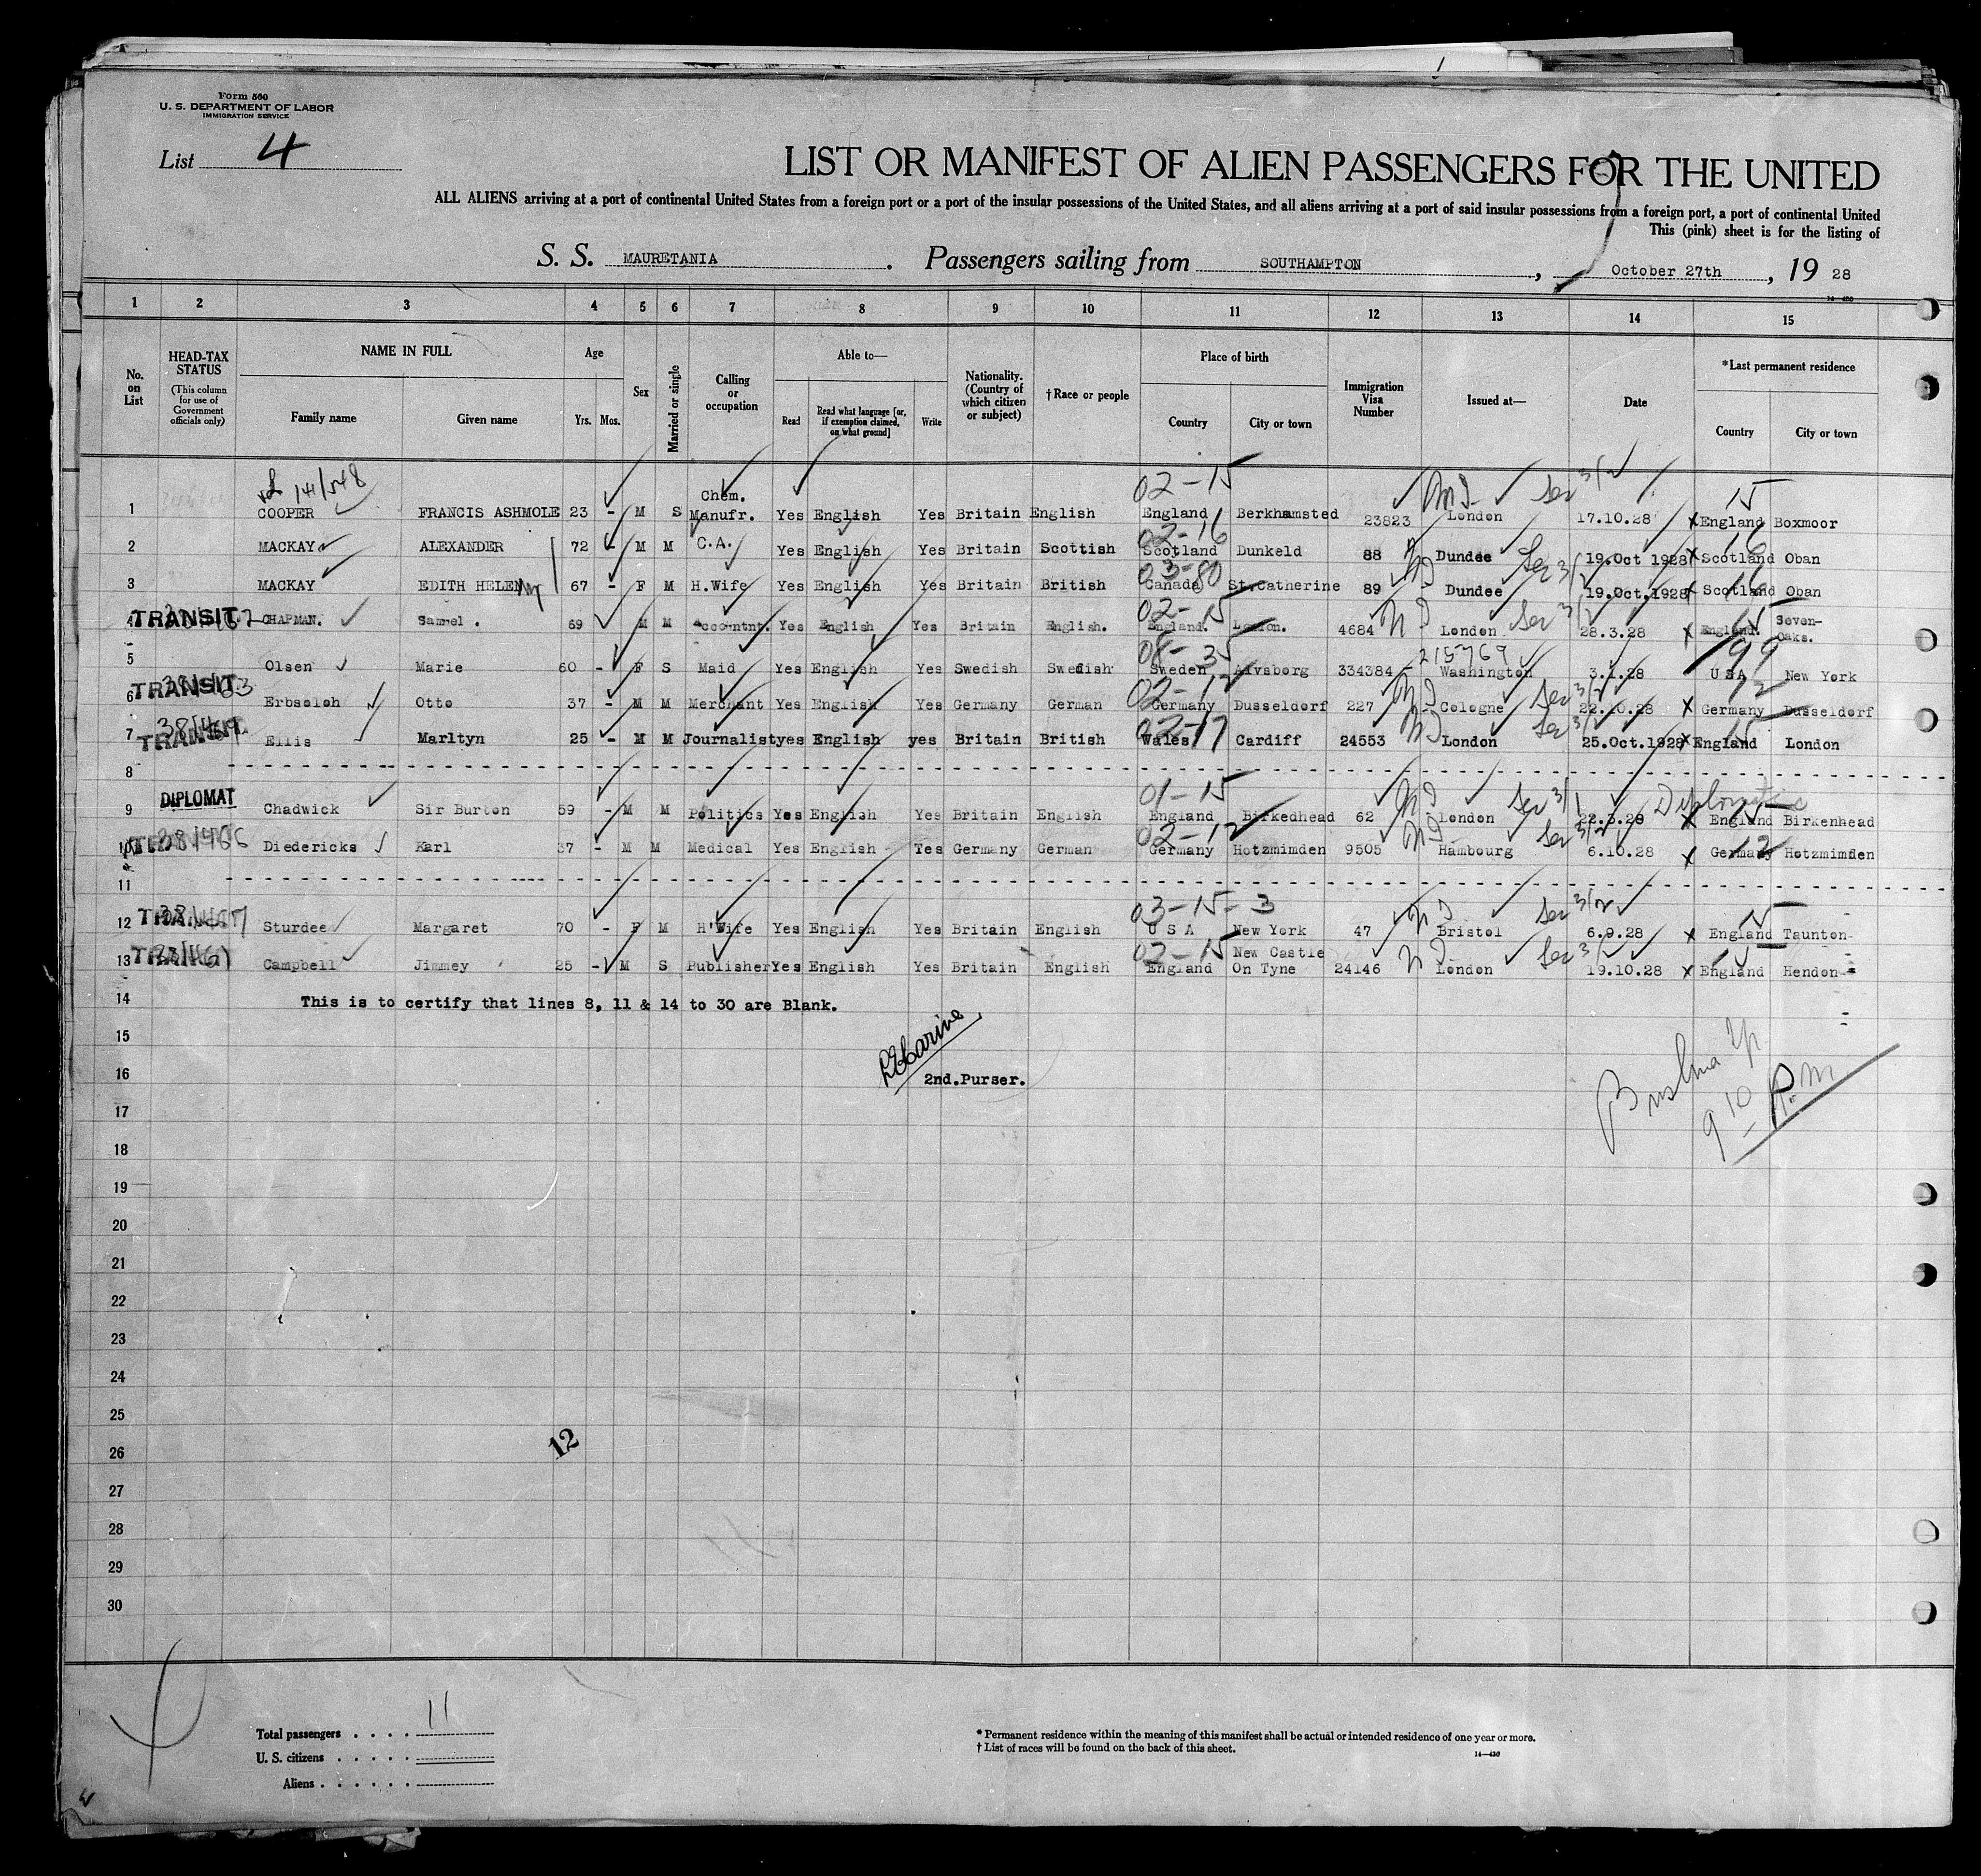 Form 500
U. S. DEPARTMENT OF LABOR
IMMIGRATION SERVICE
List 4
LIST OR MANIFEST OF ALIEN PASSENGERS FOR THE UNITED
ALL ALIENS arriving at a port of continental United States from a foreign port or a port of the insular possessions of the United States, and all aliens arriving at a port of said insular possessions from a foreign port, a port of continental United
This (pink) sheet is for the listing of
S. S. MAURETANIA. Passengers sailing from SOUTHAMPTON, October 27th, 19 28
1 2 3 4 5 6 7 8 9 10 11 12 13 14 15
No. on List
HEAD-TAX STATUS (This column for use of Government officials only)
NAME IN FULL
Family name Given name
Age Yrs. Mos.
Sex
Married or single
Calling or occupation
Able to—
Read Read what language [or, if exemption claimed, on what ground] Write
Nationality. (Country of which citizen or subject)
†Race or people
Place of birth
Country City or town
Immigration Visa Number
Issued at—
Date
*Last permanent residence
Country City or town
141/548 02-15 15
1 COOPER FRANCIS ASHMOLE 23 - M S Chem. Manufr. Yes English Yes Britain English England Berkhamsted 23823 London 17.10.28 x England Boxmoor
02-16 16
2 MACKAY ALEXANDER 72 - M M C.A. Yes English Yes Britain Scottish Scotland Dunkeld 88 Dundee 19.Oct 1928 x Scotland Oban
03-80 16
3 MACKAY EDITH HELEN 67 - F M H.Wife Yes English Yes Britain British Canada St.Catherine 89 Dundee 19.Oct.1928 x Scotland Oban
02-15 15
4 TRANSIT CHAPMAN. Samuel . 69 M M Accountnt. Yes English Yes Britain English. England. London. 4684 London 28.3.28 x England. Seven-Oaks.
35 215769 99
5 Olsen Marie 60 - F S Maid Yes English Yes Swedish Swedish Sweden Alvsborg 334384 Washington 3.1.28 USA New York
02-12 12
6 TRANSIT Erbsoloh Otto 37 - M M Merchant Yes English Yes Germany German Germany Dusseldorf 227 Cologne 22.10.28 x Germany Dusseldorf
02-17 15
7 TRANSIT Ellis Marltyn 25 - M M Journalist yes English yes Britain British Wales Cardiff 24553 London 25.Oct.1928 x England London
8
01-15 Diplomatic 15
9 DIPLOMAT Chadwick Sir Burton 59 - M M Politics Yes English Yes Britain English England Birkedhead 62 London 22.3.28 x England Birkenhead
02-12 12
10 Diedericks Karl 37 - M M Medical Yes English Yes Germany German Germany Hotzmimden 9505 Hambourg 6.10.28 x Germany Hotzmimden
11
03-15-3 15
12 Sturdee Margaret 70 - F M H'Wife Yes English Yes Britain English U S A New York 47 Bristol 6.9.28 x England Taunton
02-15 15
13 Campbell Jimmey 25 - M S Publisher Yes English Yes Britain English England New Castle On Tyne 24146 London 19.10.28 x England Hendon
14 This is to certify that lines 8, 11 & 14 to 30 are Blank.
15
16 2nd.Purser.
9 10 P.m.
17
18
19
20
21
22
23
24
25
26
12
27
28
29
30
Total passengers . . . . 11
U. S. citizens . . . . .
Aliens . . . . . .
* Permanent residence within the meaning of this manifest shall be actual or intended residence of one year or more.
† List of races will be found on the back of this sheet.
14—430